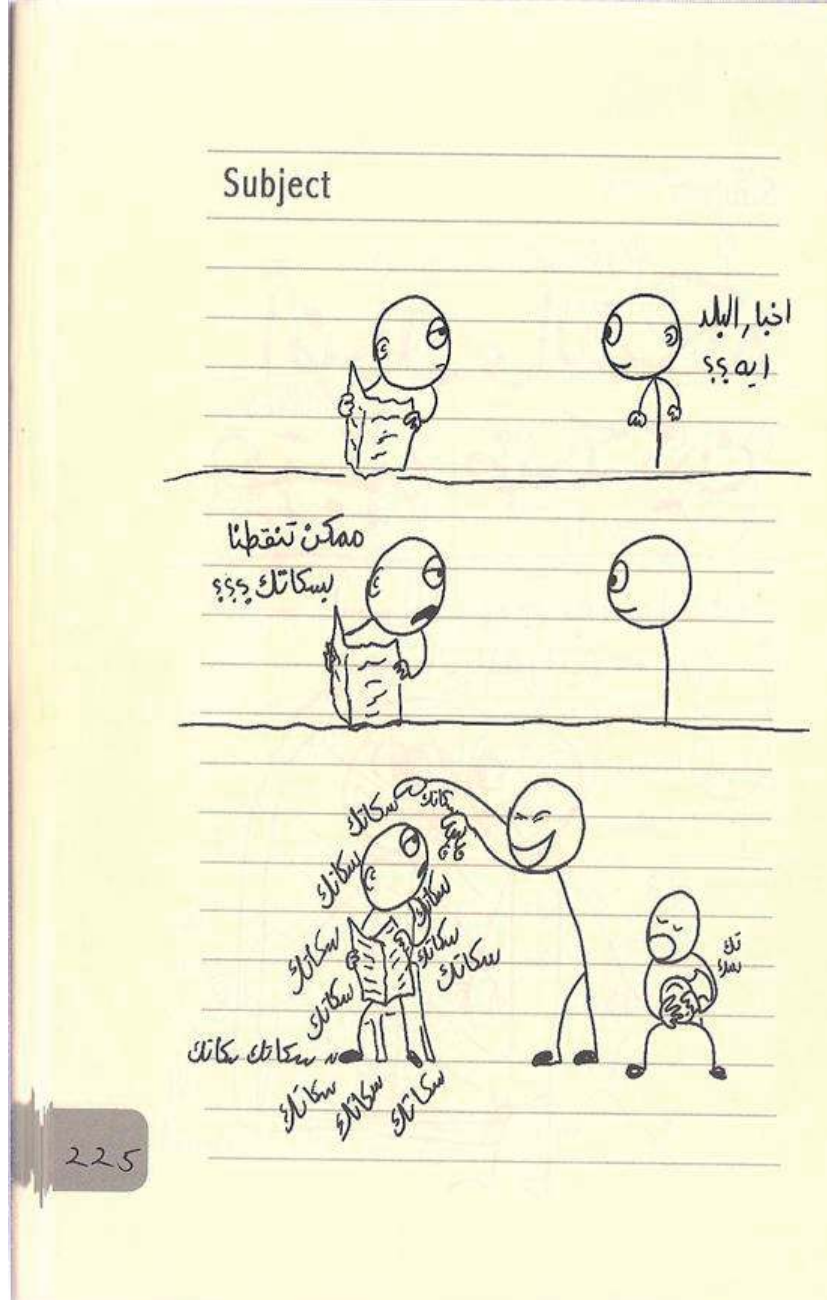 Subject
اخبار البلد
ايه ؟؟
ممكن تنقطنا
بسكاتك ؟؟؟
سكاتك
سكاتك
سكاتك
سكاتك
سكاتك
سكاتك
سكاتك
سكاتك
تك
سكاتك سكاتك
سكاتك
سكاتك
سكاتك
225